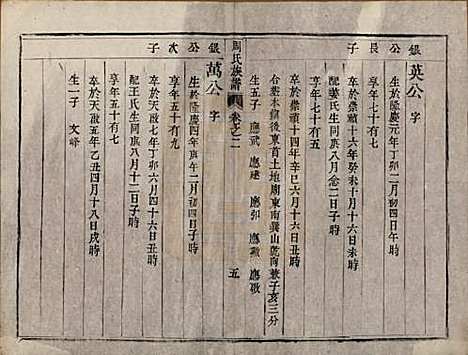 銀公長子
英公 字
生於隆慶元年丁卯二月初四日午時
卒於崇禎十六年癸未十月十六日未時
享年七十有七
配姜氏生同庚八月念二日子時
卒於崇禎十四年辛巳六月十六日丑時
享年七十有五
合葬本鎮後東首土地廟東南巽山乾向兼子亥三分
生五子 應武 應建 應卯 應 應敬
周氏族譜 卷之二 五
銀公次子
萬公 字
生於隆慶四年庚午二月初四日子時
卒於天啟七年丁卯六月十六日丑時
享年五十有
配王氏生同庚八月十二日子時
卒於天啟五年乙丑四月十八日戌時
享年五十有七
生一子 文峰